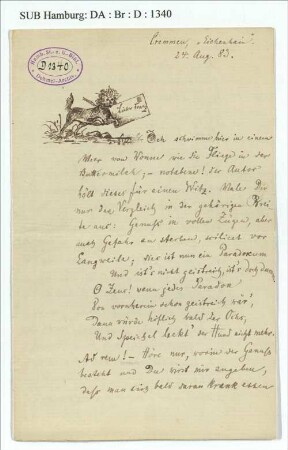 SUB Hamburg: DA : Br : D : 1340
Cremmen, „Eichenhain“.
24. Aug. 83.
D 1340
Lieber Franz!
Ich schwimme hier in einem
Meer von Wonne wie die Fliege in der
Buttermilch; – notabene! der Autor
hält dieses für einen Witz. Male Dir
nur den Vergleich in der gehörigen Breite
aus: Genuß in vollen Zügen, aber
auch Gefahr zu sterben, scilicet vor
Langweile; dies ist nun ein Paradoxum
Und ist's nicht geistreich, ist's doch
O Zeus! wenn jedes Paradox
Von vornherein schon geistreich wär',
Dann würde höflich bald der Ochs,
Und Speichel leckt' der Hund nicht mehr.
Ad rem! – Höre nur, worin der Genuß
besteht und Du wirst mir zugeben,
daß man sich bald daran krank essen